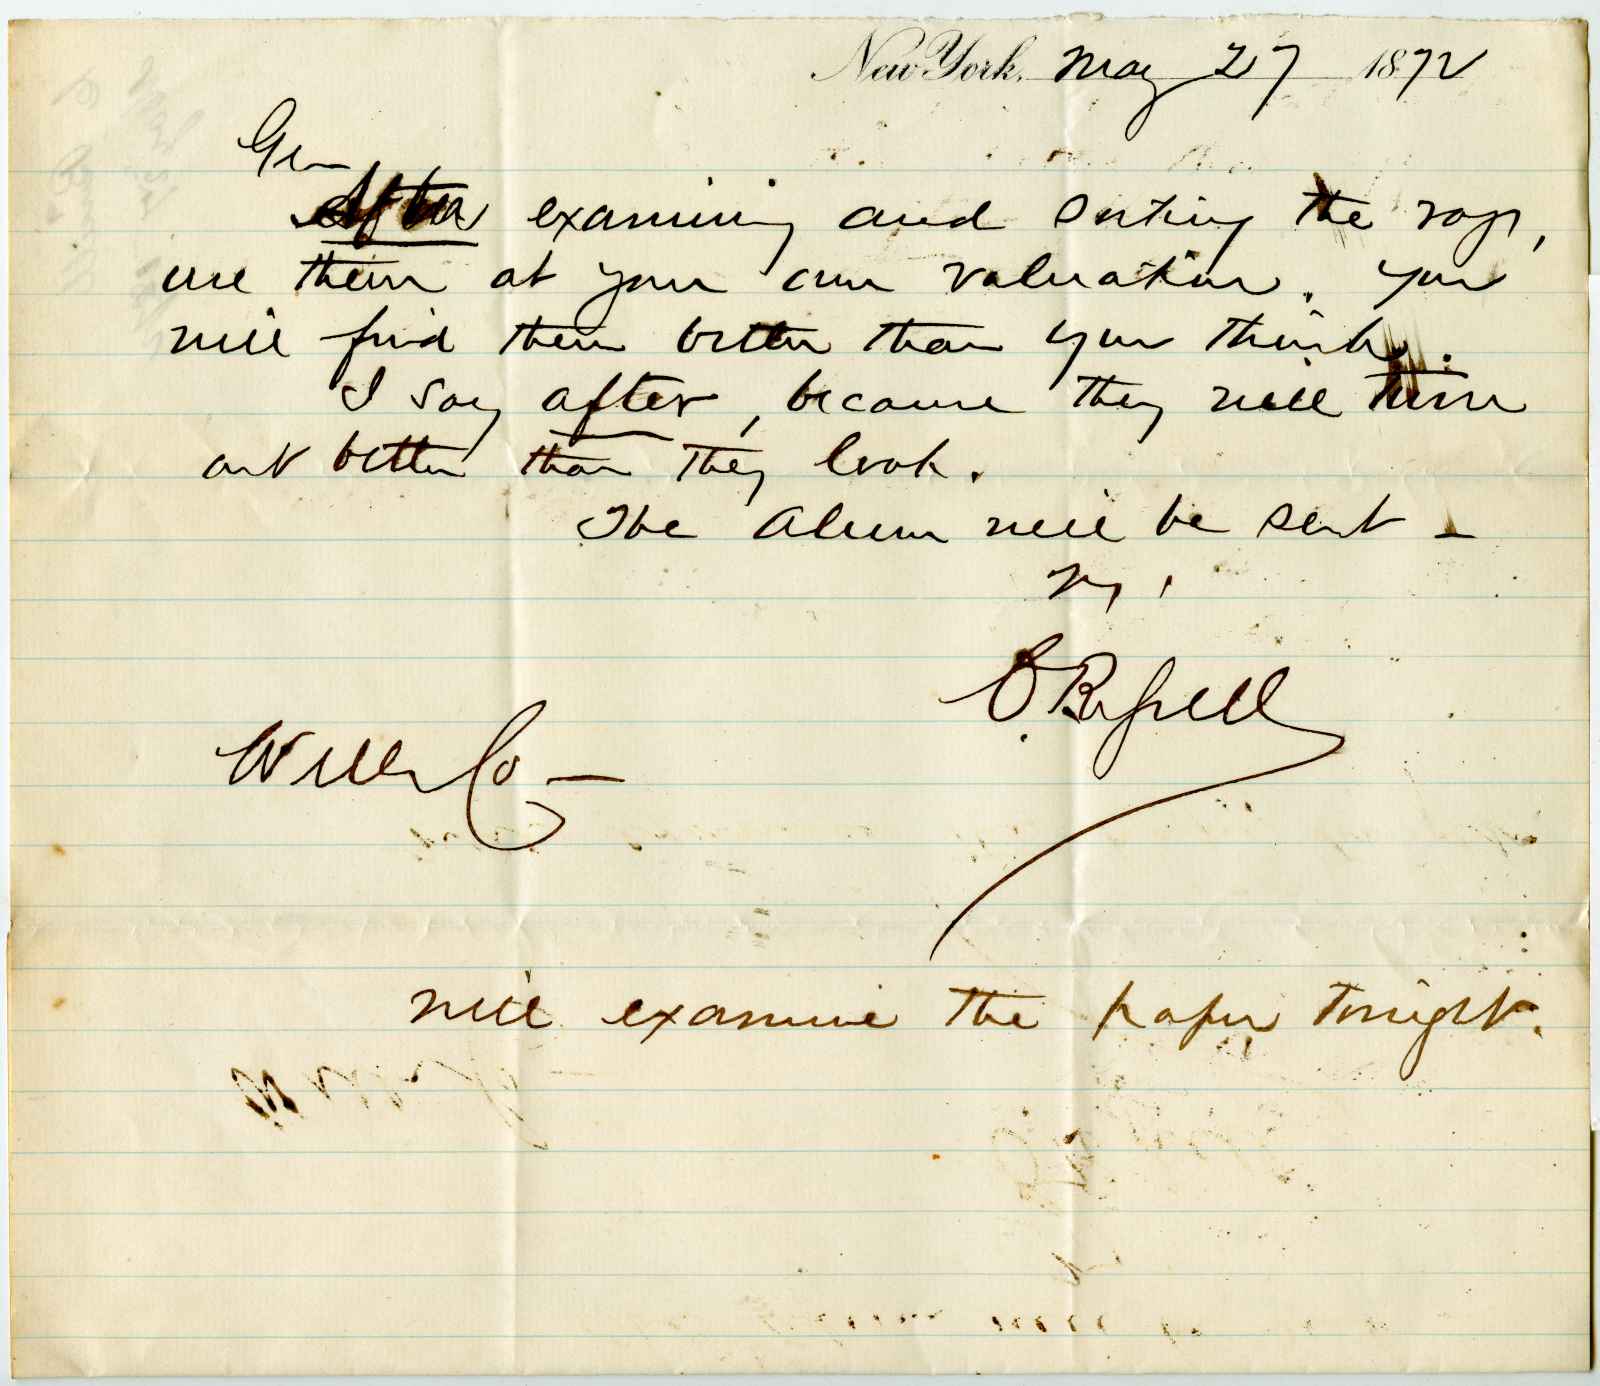 New York, May 27 1872
Gen
After examining and sorting the rags,
use them at your own valuation. You
will find them better than you think.
I say after, because they will turn
out better than they look.
The Alum will be sent —
Wills Co —
will examine the paper tonight.